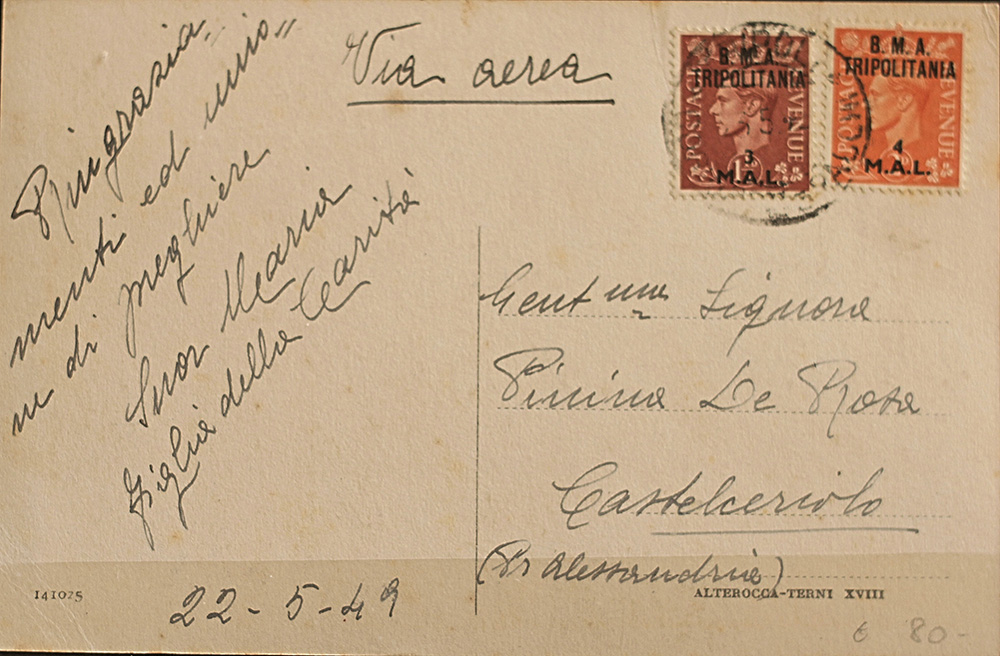 Via aerea
B. M. A.
TRIPOLITANIA
POSTAGE REVENUE
3
M.A.L.
B. M. A.
TRIPOLITANIA
4
M.A.L.
Ringrazia-
menti ed unio=
ne di preghiere
Suor Maria
Figlia della Carità
22-5-49
Gent ma Signora
Pinina De Rosa
Castelceriolo
(Pr Alessandria)
141025
ALTEROCCA-TERNI XVIII
€ 80-